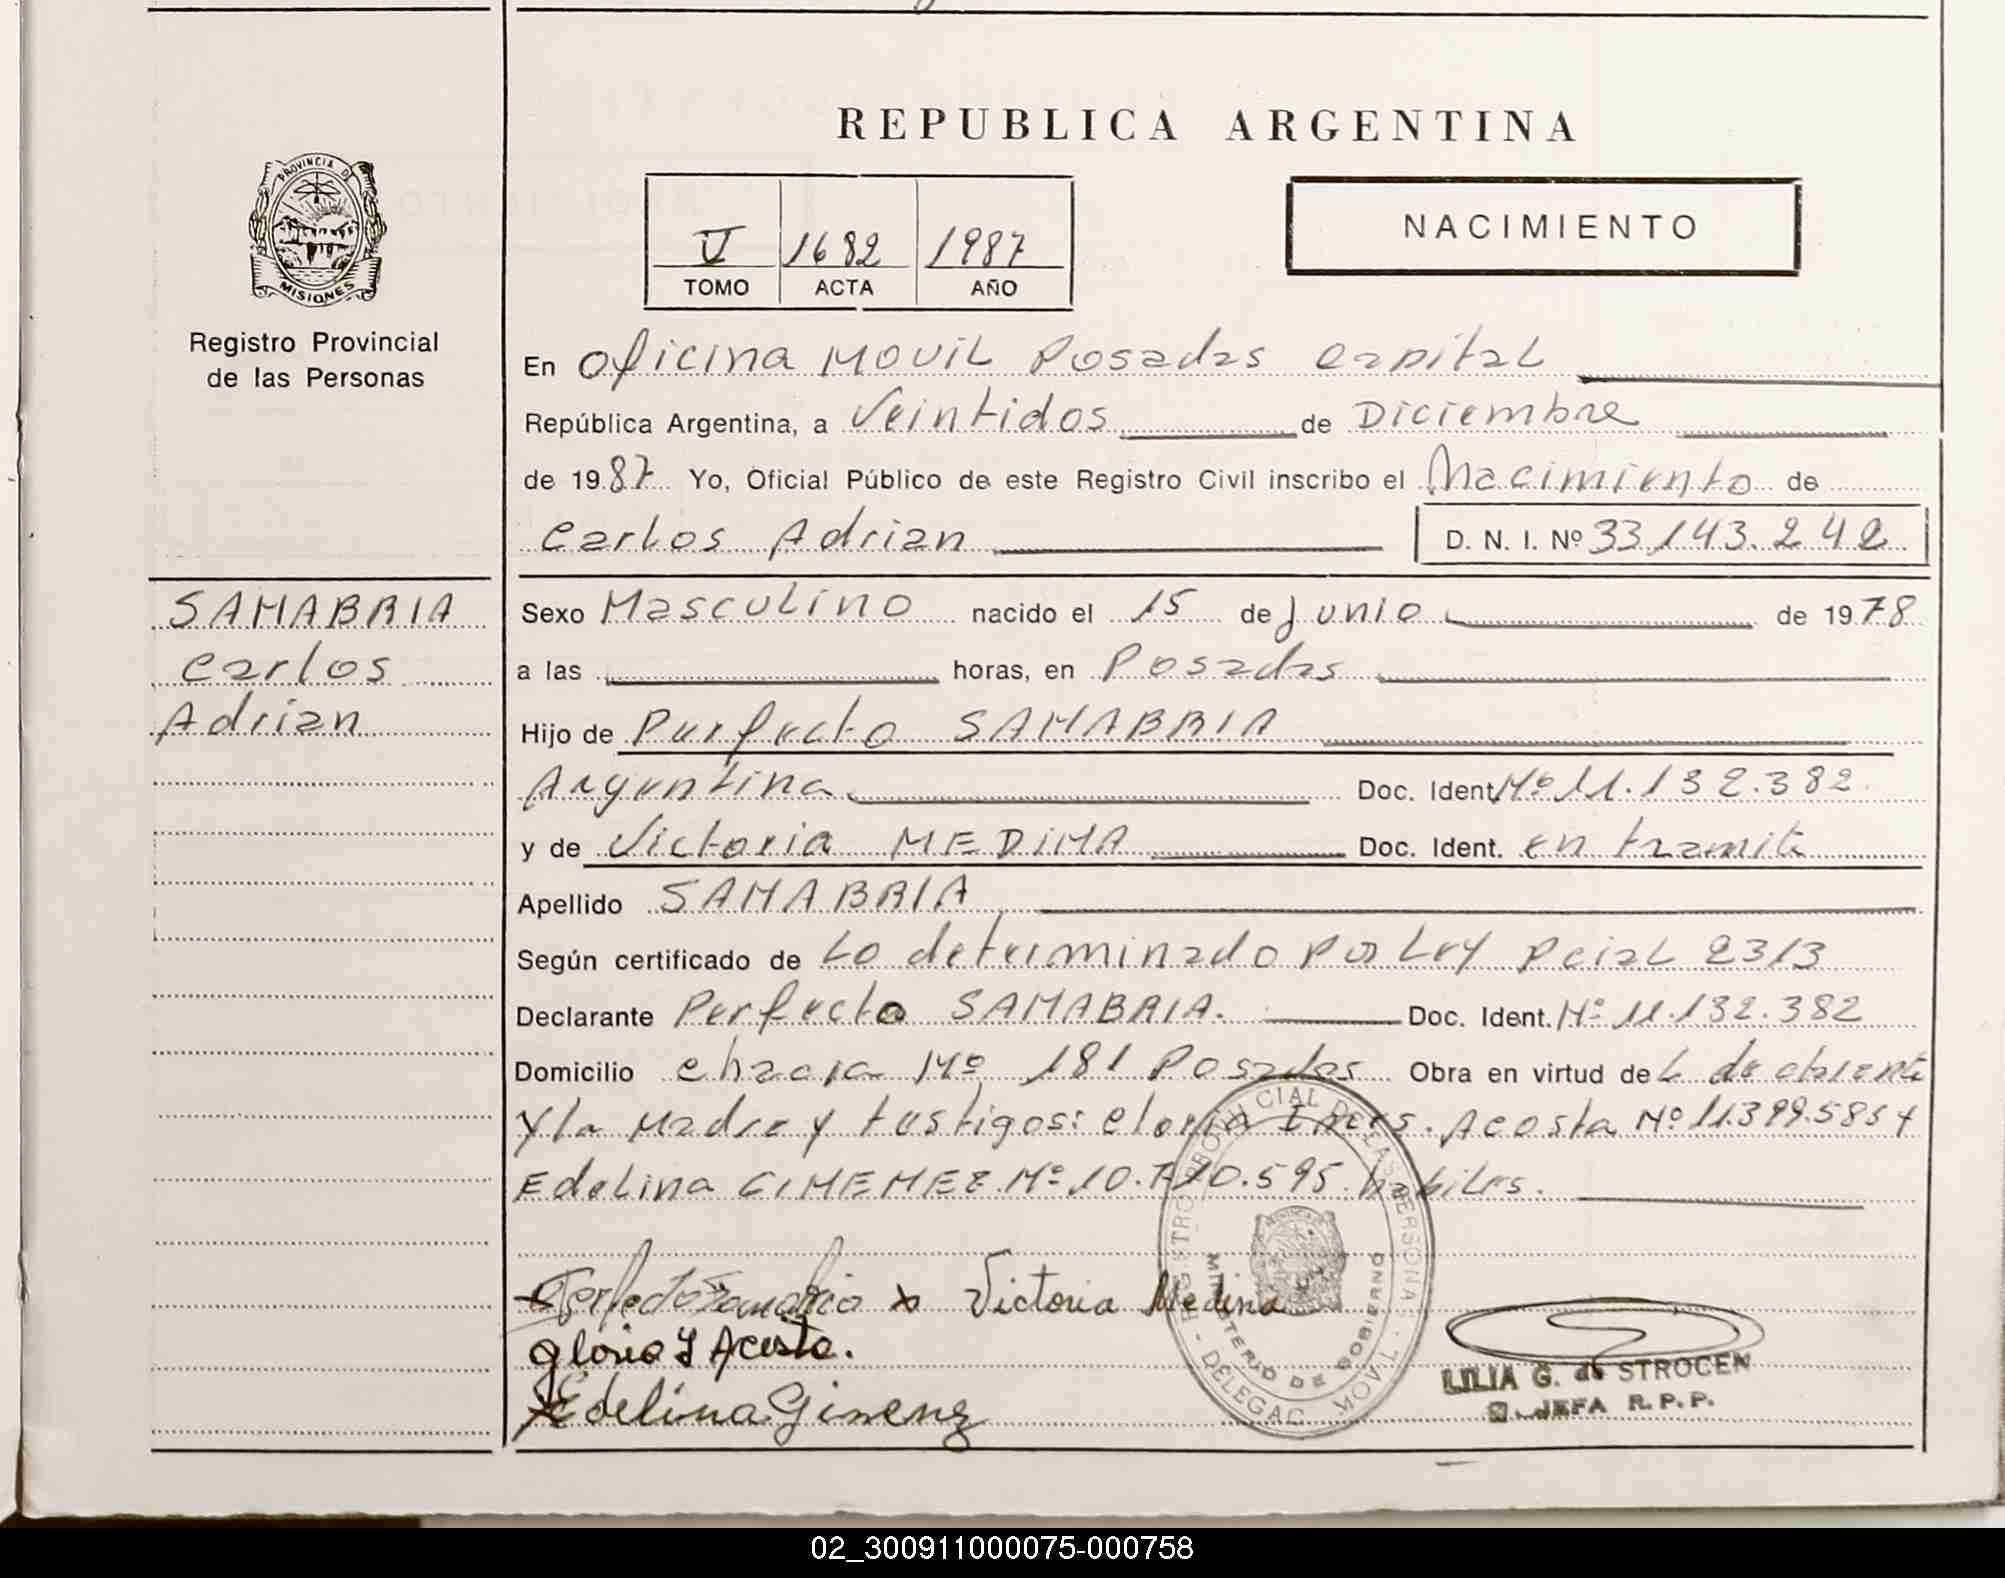 REPUBLICA ARGENTINA
PROVINCIA D
MISIONES
Registro Provincial
de las Personas
V 1682 1987
TOMO ACTA AÑO
NACIMIENTO
En Oficina Movil Posadas Capital
República Argentina, a Veintidos de Diciembre
de 1987 Yo, Oficial Público de este Registro Civil inscribo el Nacimiento de
Carlos Adrian D. N. I. Nº 33.143.242
SANABRIA
Carlos
Adrian
Sexo Masculino nacido el 15 de Junio de 1978
a las horas, en Posadas
Hijo de Perfecto SANABRIA
Argentina Doc. Ident. Nº 11.132.382
y de Victoria MEDINA Doc. Ident. en tramite
Apellido SANABRIA
Según certificado de Lo determinado por Ley Pcial 2313
Declarante Perfecto SANABRIA. Doc. Ident. Nº 11.132.382
Domicilio Chacra Nº 181 Posadas Obra en virtud de
y la Madre y testigos: Gloria Ines. Acosta Nº 11.399.585 y
Edelina GIMENEZ Nº 10.710.595 habiles.
Perfecto Sanabria x Victoria Medina
Gloria I Acosta.
Edelina Gimenez
REGISTRO PROVINCIAL DE LAS PERSONAS
MINISTERIO DE GOBIERNO
DELEGAC. MOVIL
LILIA G. de STROCEN
JEFA R.P.P.
02_300911000075-000758